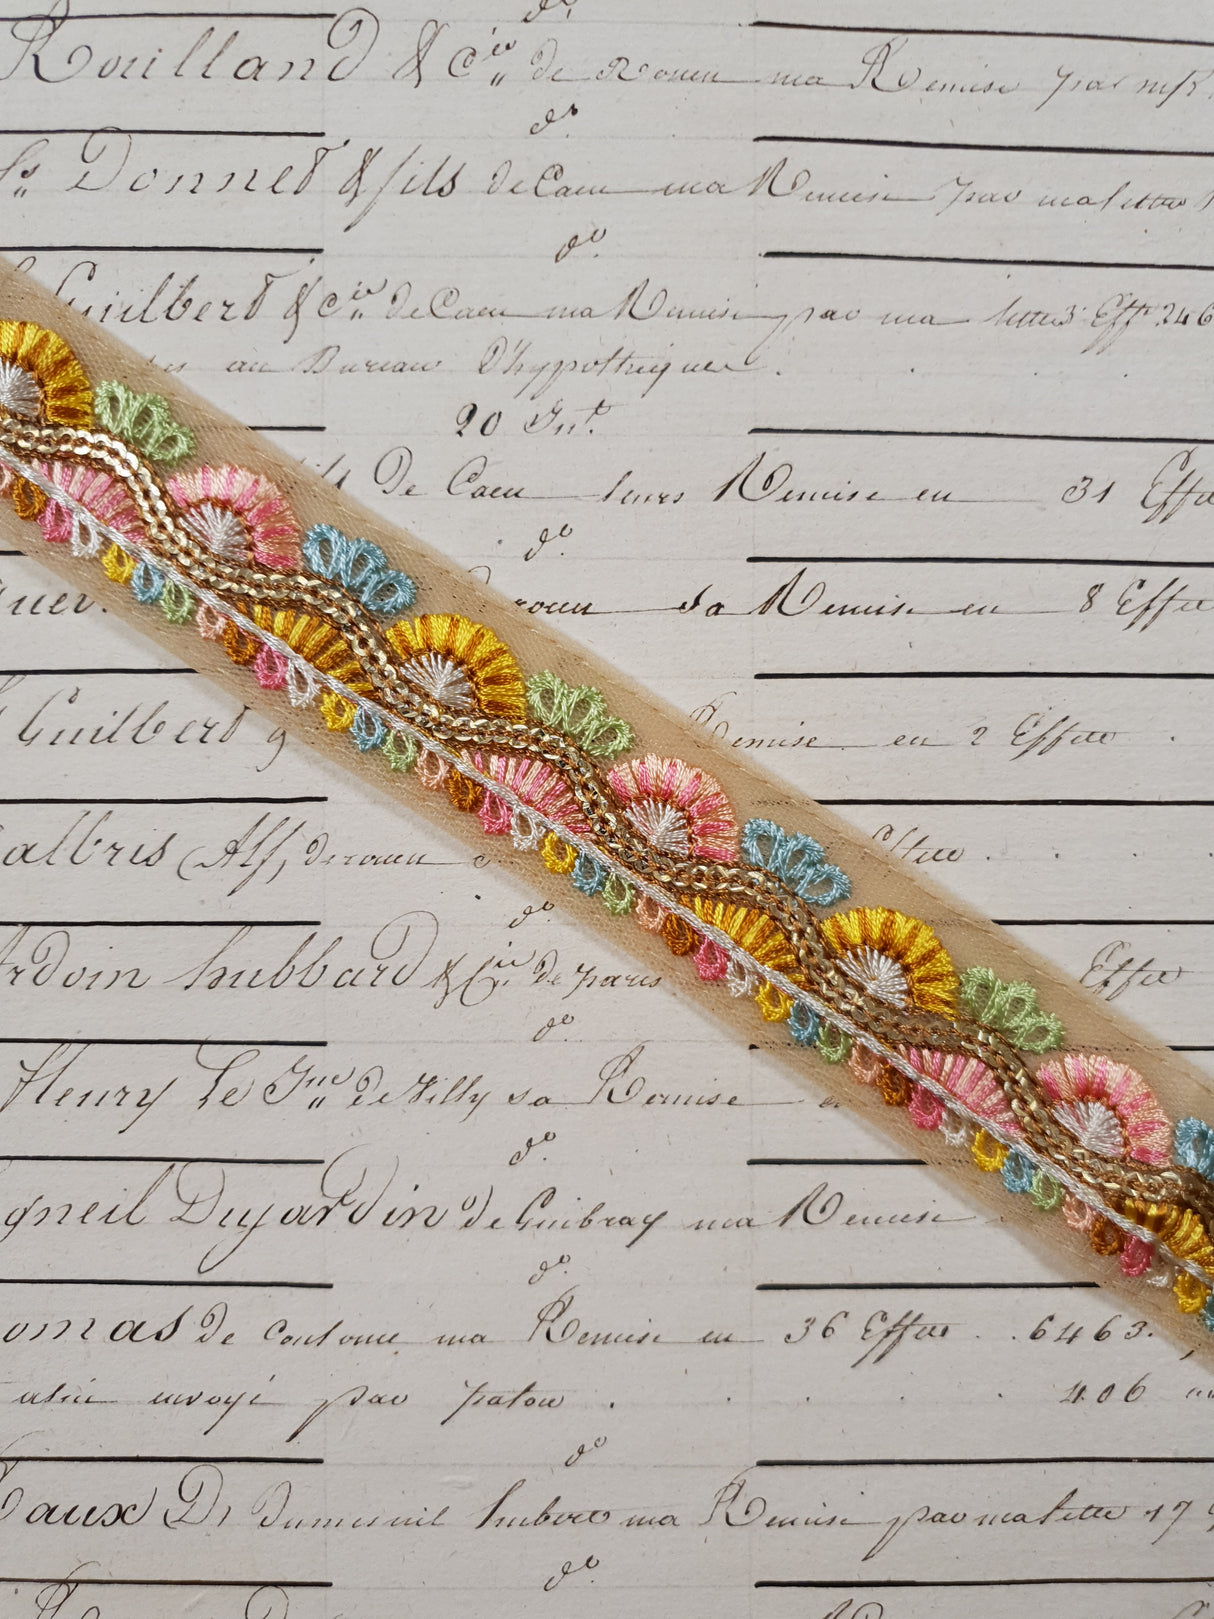 do.
Rouilland & Cie de Rouen ma Remise par m/R
do.
Donnet & fils de Caen ma Remise par ma lettre
do.
Guilbert & Cie de Caen ma Remise par ma lettre 3 Eff 246
au Bureau D'hypothèques.
20 Jut.
De Caen leurs Remise en 31 Effet
do.
sa Remise en 8 Effet
Guilbert Remise en 2 Effets
albris Alf, de rouen
do
ardoin hubbard & Cie de paris Effet
do
fleury Le Jne de Tilly sa Remise
do.
gneil Dujardin de Guibray ma Remise
do.
omas de Coutance ma Remise en 36 Effets 6463.
envoyé par patou 406
do
aux D dumesnil hubert ma Remise par ma lettre 17
do.